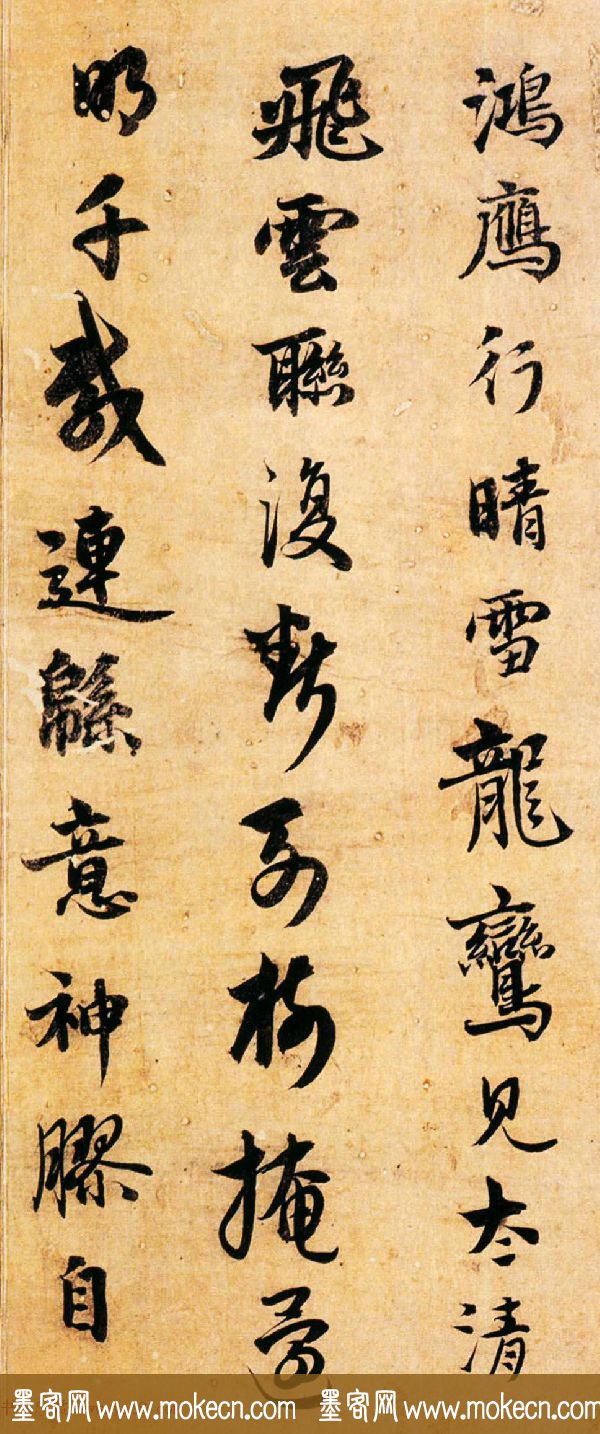 鴻鴈行晴雪龍鸞見太清
飛雲聯復斷列樹掩還
明千載連緜意神膠自
墨客网 www.mokecn.com 墨客网 www.mokecn.com